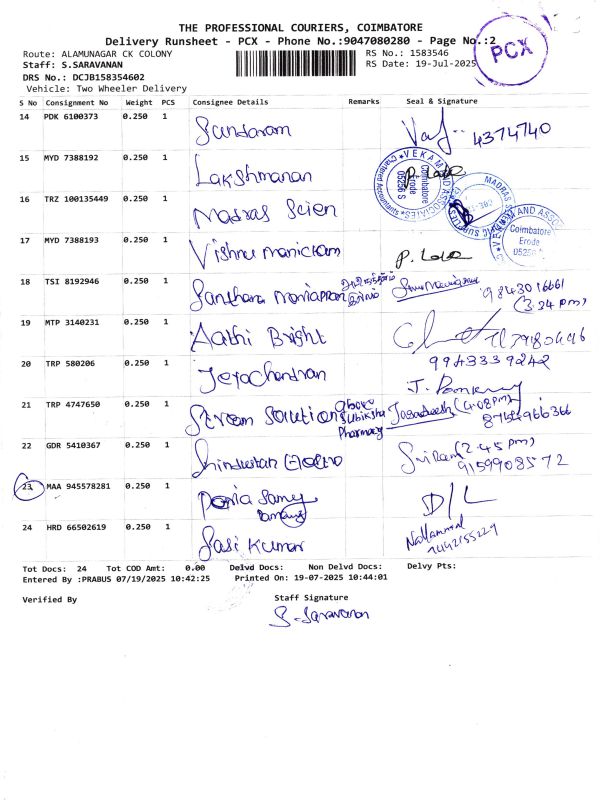 THE PROFESSIONAL COURIERS, COIMBATORE
Delivery Runsheet - PCX - Phone No.:9047080280 - Page No.:2
Route: ALAMUNAGAR CK COLONY
RS No.: 1583546
Staff: S.SARAVANAN
RS Date: 19-Jul-2025
PCX
DRS No.: DCJB158354602
Vehicle: Two Wheeler Delivery
S No Consignment No Weight PCS Consignee Details Remarks Seal & Signature
14 PDK 6100373 0.250 1 Sundaram 4374740
15 MYD 7388192 0.250 1 Lakshmanan
16 TRZ 100135449 0.250 1 Madras Scien
17 MYD 7388193 0.250 1 Vishnu manickam
Coimbatore
Erode
18 TSI 8192946 0.250 1 Santhana (3:34 pm)
19 MTP 3140231 0.250 1 Aathi Bright
20 TRP 580206 0.250 1 Jeyachandran 9943339242
21 TRP 4747650 0.250 1 Stream Solutions above Subiksha Pharmacy (4:08pm)
22 GDR 5410367 0.250 1 Sriram (2:45 pm)
9159908572
23 MAA 945578281 0.250 1 Samy D/L
24 HRD 66502619 0.250 1 Sasi Kumar
Tot Docs: 24 Tot COD Amt: 0.00 Delvd Docs: Non Delvd Docs: Delvy Pts:
Entered By :PRABUS 07/19/2025 10:42:25 Printed On: 19-07-2025 10:44:01
Verified By
Staff Signature
S. Saravanan